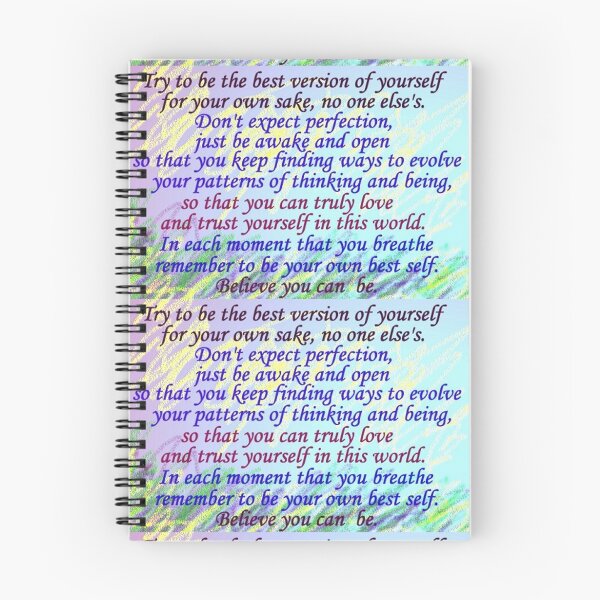 Try to be the best version of yourself
for your own sake, no one else's.
Don't expect perfection,
just be awake and open
so that you keep finding ways to evolve
your patterns of thinking and being,
so that you can truly love
and trust yourself in this world.
In each moment that you breathe
remember to be your own best self.
Believe you can  be.
Try to be the best version of yourself
for your own sake, no one else's.
Don't expect perfection,
just be awake and open
so that you keep finding ways to evolve
your patterns of thinking and being,
so that you can truly love
and trust yourself in this world.
In each moment that you breathe
remember to be your own best self.
Believe you can  be.